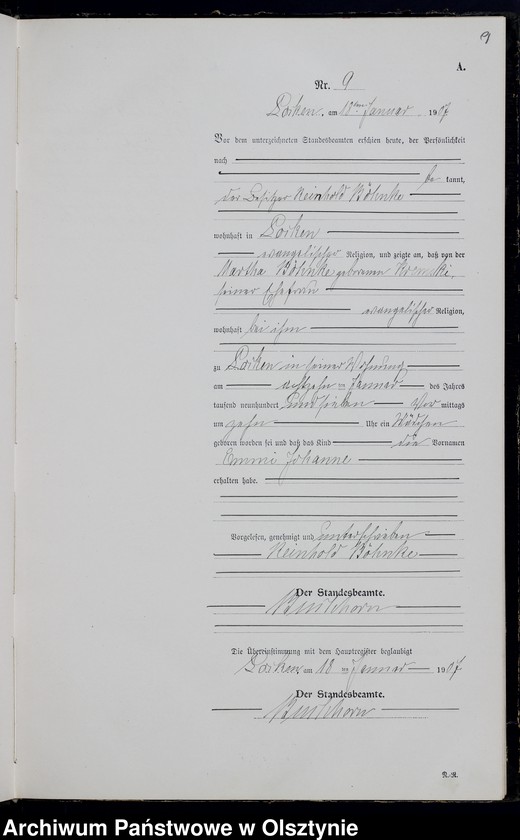 9
A.
Nr. 9
Locken, am 18ten Januar 1907
Vor dem unterzeichneten Standesbeamten erschien heute, der Persönlichkeit
nach
be kannt,
der Besitzer Reinhold Böhnke
wohnhaft in Locken
evangelischer Religion, und zeigte an, daß von der
Martha Böhnke geborenen
seiner Ehefrau
evangelischer Religion,
wohnhaft bei ihm
zu Locken in seiner Wohnung
am achtzehn ten Januar des Jahres
tausend neunhundert und sieben Vor mittags
um zehn Uhr ein Mädchen
geboren worden sei und daß das Kind die Vornamen
Emmi Johanne
erhalten habe.
Vorgelesen, genehmigt und unterschrieben
Reinhold Böhnke
Der Standesbeamte.
Die Übereinstimmung mit dem Hauptregister beglaubigt
Locken am 18 ten Januar 1907
Der Standesbeamte.
N.-R.
Archiwum Państwowe w Olsztynie